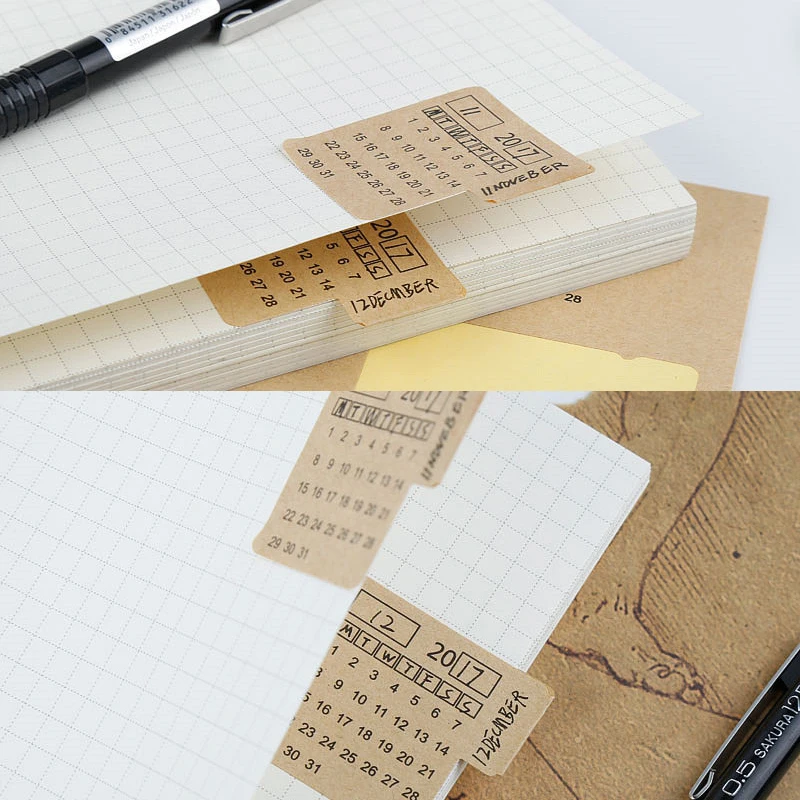 84511 31622
Japan/Japon/Japón
11
2017
M T W T F S S
1 2 3 4 5 6 7
8 9 10 11 12 13 14
15 16 17 18 19 20 21
22 23 24 25 26 27 28
29 30 31
11 NOVEBER
2017
F S S
5 6 7
12 13 14
19 20 21
26 27 28
12 DECMBER
28
2017
M T W T F S S
1 2 3 4 5 6 7
8 9 10 11 12 13 14
15 16 17 18 19 20 21
22 23 24 25 26 27 28
29 30 31
11 NOVEBER
12
2017
M T W T F S S
1 2 3 4 5 6 7
9 10 11 12 13 14
16 17 18 19 20 21
23 24 25 26 27 28
30 31
12 DECMBER
0.5 SAKURA 125